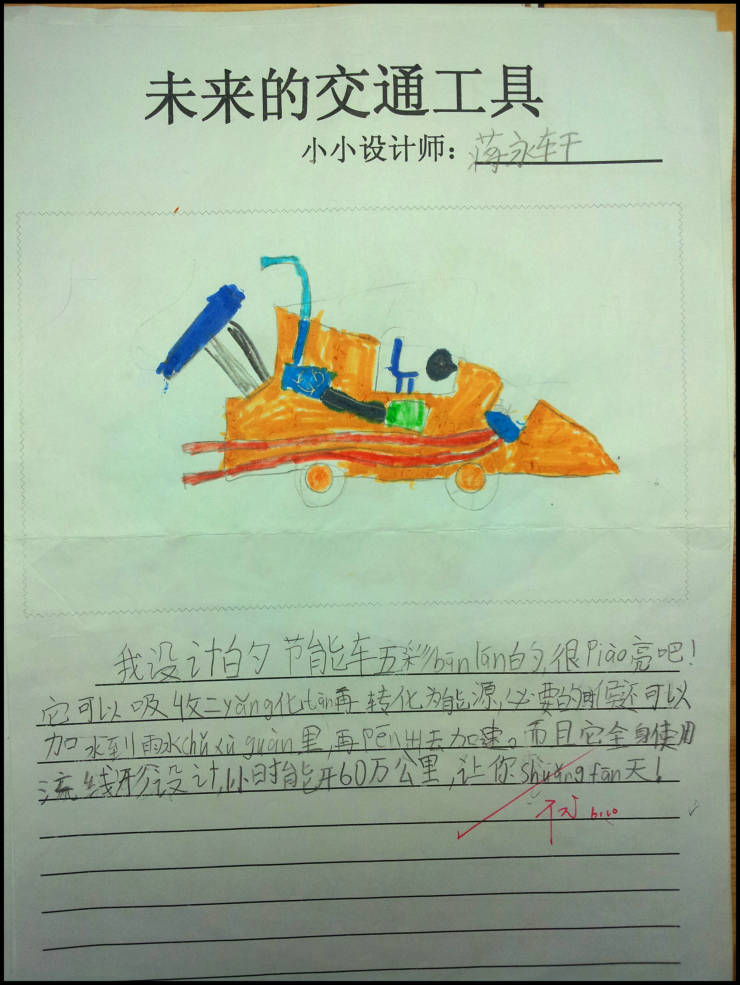 未来的交通工具
小小设计师：蒋永轩
我设计的节能车五彩bān lán的,很Piào亮吧！
它可以吸收二yǎng化tàn再转化为能源,必要的时候还可以
加水到雨水chǔ xù guàn里,再Pēn出去加速。而且它全身使用
流线形设计,1小时能开60万公里,让你shuǎng fān天！